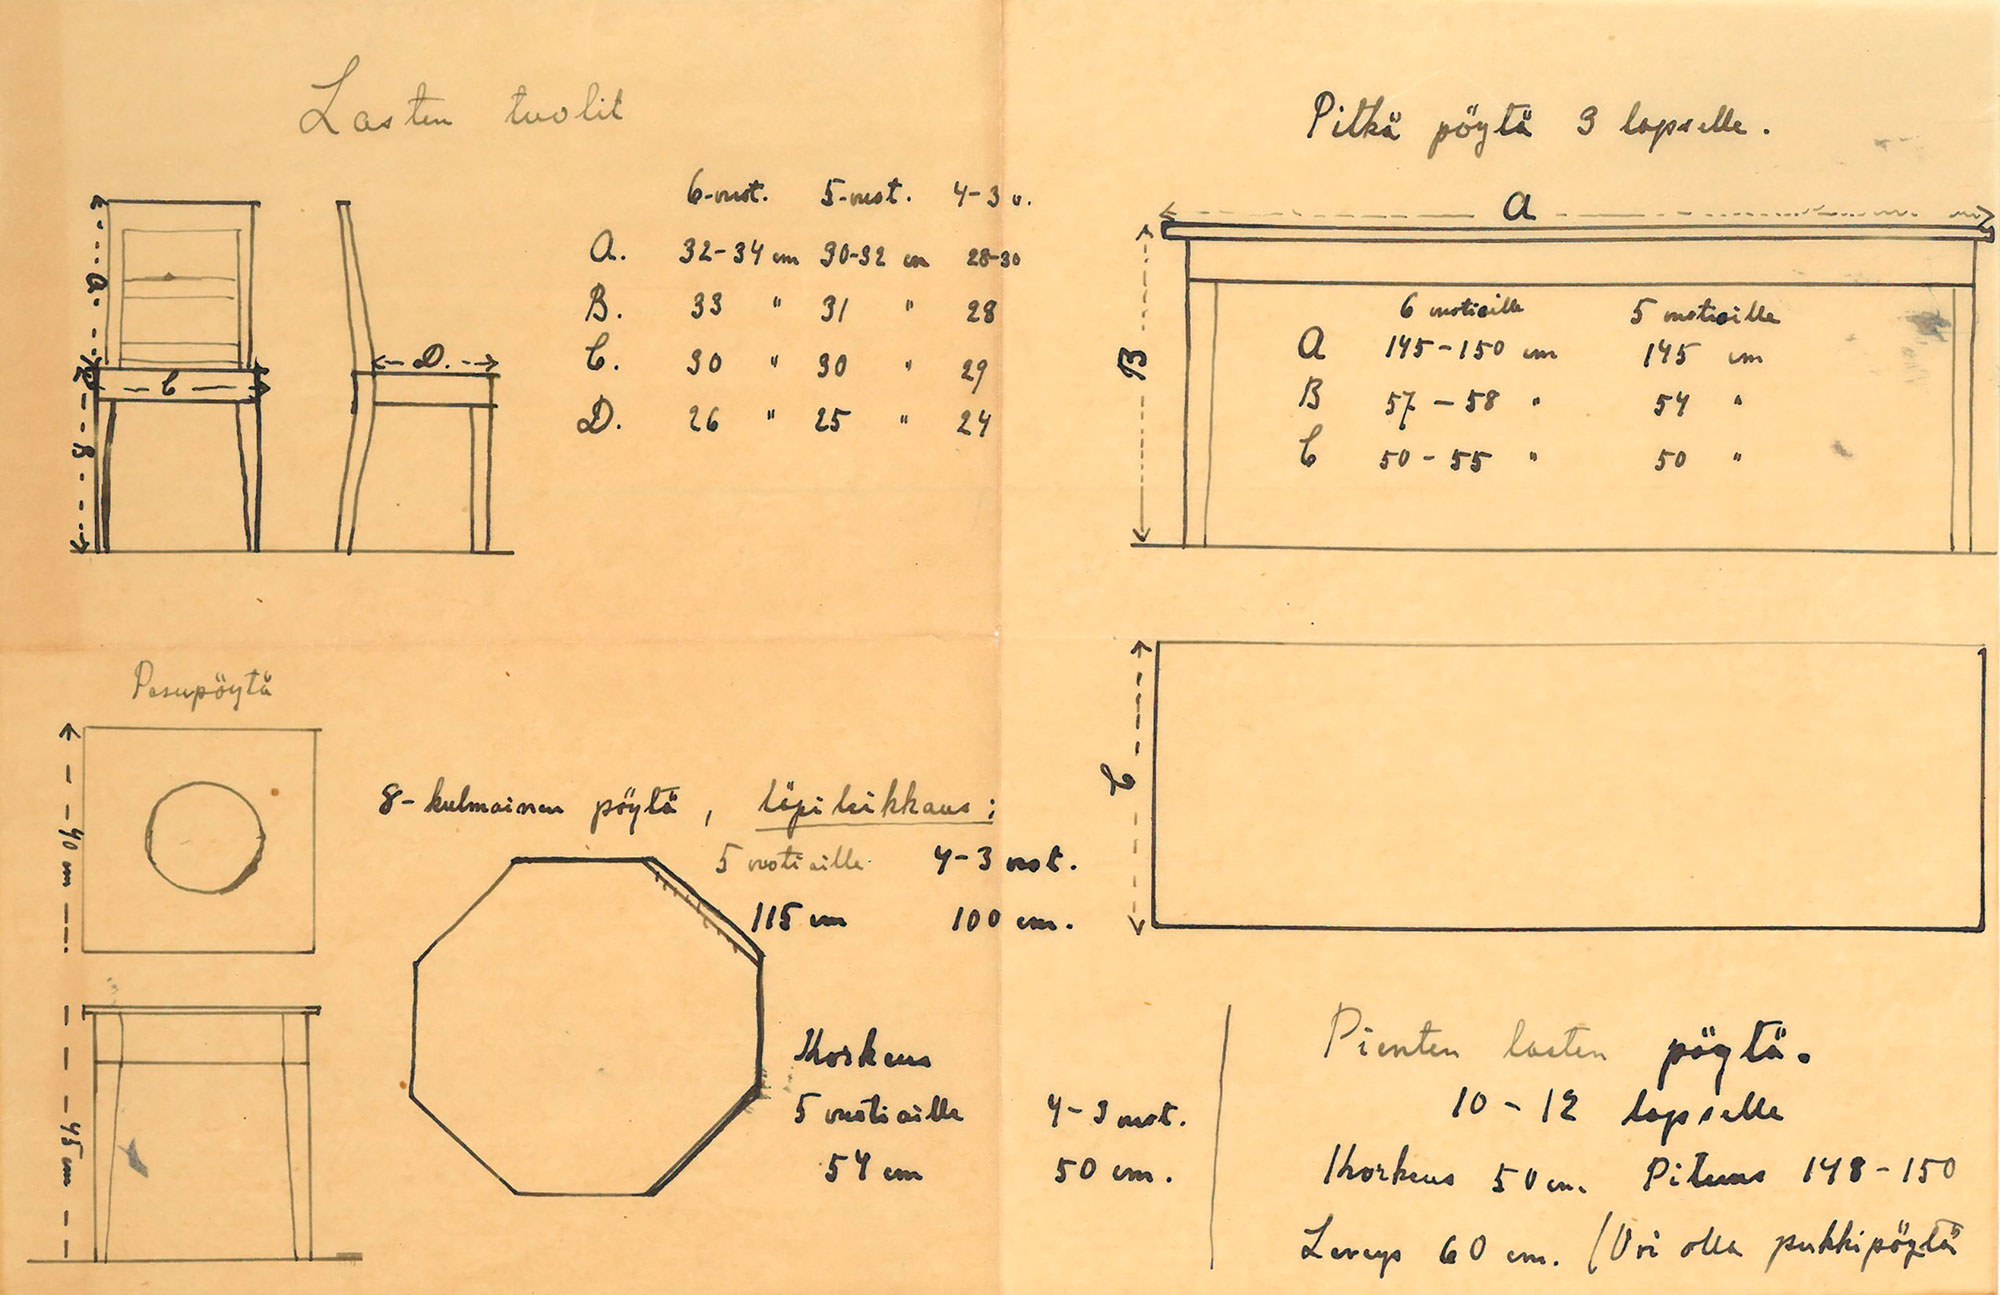 Lasten tuolit
6-vuot. 5-vuot. 4-3 v.
A. 32-34 cm 30-32 cm 28-30
B. 33 " 31 " 28
C. 30 " 30 " 29
D. 26 " 25 " 24
a
D.
C
B
Pitkä pöytä 3 lapselle.
A
B
6 vuotiaille 5 vuotiaille
A 145-150 cm 145 cm
B 57-58 " 54 "
C 50-55 " 50 "
C
Pesupöytä
40 cm
45 cm
8-kulmainen pöytä, läpileikkaus:
5 vuotiaille 4-3 vuot.
115 cm 100 cm.
Korkeus
5 vuotiaille 4-3 vuot.
54 cm 50 cm.
Pienten lasten pöytä.
10-12 lapselle
Korkeus 50 cm. Pituus 148-150
Leveys 60 cm. (Voi olla pukkipöytä